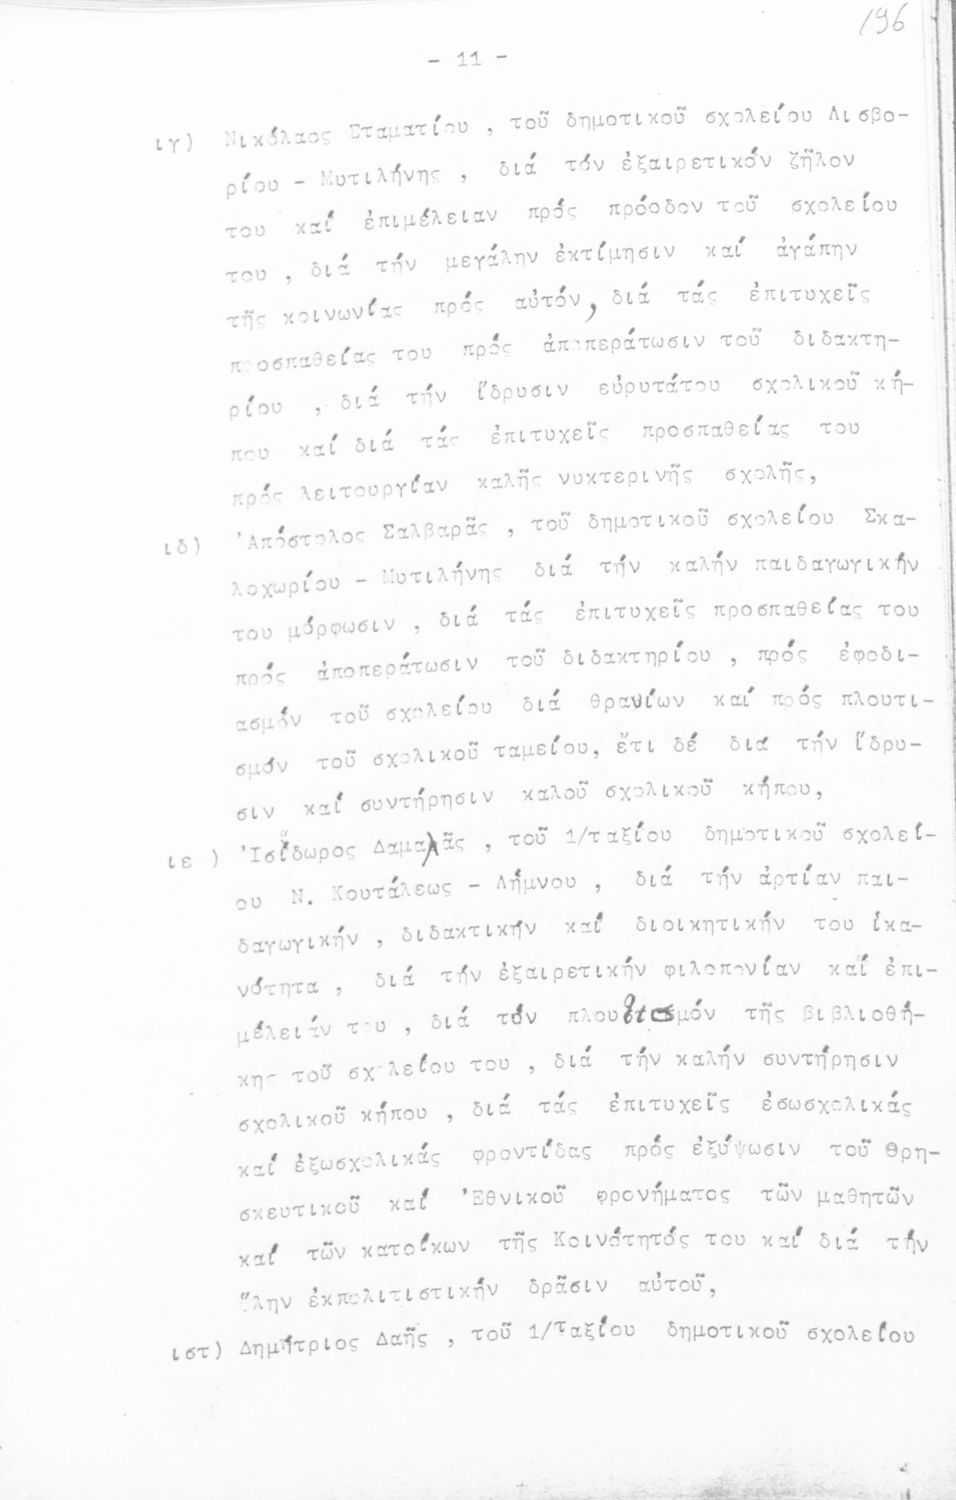 196
- 11 -
ιγ) Νικόλαος Σταματίου , τοῦ δημοτικοῦ σχολείου Λισβο-
ρίου - Μυτιλήνης , διά τόν ἐξαιρετικόν ζῆλον
του καί ἐπιμέλειαν πρός πρόοδον τοῦ σχολείου
του , διά τήν μεγάλην ἐκτίμησιν καί ἀγάπην
τῆς κοινωνίας πρός αὐτόν, διά τάς ἐπιτυχεῖς
προσπαθείας του πρός ἀποπεράτωσιν τοῦ διδακτη-
ρίου , διά τήν ἵδρυσιν εὐρυτάτου σχολικοῦ κή-
που καί διά τάς ἐπιτυχεῖς προσπαθείας του
πρός λειτουργίαν καλῆς νυκτερινῆς σχολῆς,
ιδ) 'Απόστολος Σαλβαρᾶς , τοῦ δημοτικοῦ σχολείου Σκα-
λοχωρίου - Μυτιλήνης διά τήν καλήν παιδαγωγικήν
του μόρφωσιν , διά τάς ἐπιτυχεῖς προσπαθείας του
πρός ἀποπεράτωσιν τοῦ διδακτηρίου , πρός ἐφοδι-
ασμόν τοῦ σχολείου διά θρανίων καί πρός πλουτι-
σμόν τοῦ σχολικοῦ ταμείου, ἔτι δέ διά τήν ἵδρυ-
σιν καί συντήρησιν καλοῦ σχολικοῦ κήπου,
ιε ) 'Ισίδωρος Δαμαλᾶς , τοῦ 1/ταξίου δημοτικοῦ σχολεί-
ου Ν. Κουτάλεως - Λήμνου , διά τήν ἀρτίαν παι-
δαγωγικήν , διδακτικήν καί διοικητικήν του ἱκα-
νότητα , διά τήν ἐξαιρετικήν φιλοπονίαν καί ἐπι-
μέλειάν του , διά τόν πλουτισμόν τῆς βιβλιοθή-
κης τοῦ σχολείου του , διά τήν καλήν συντήρησιν
σχολικοῦ κήπου , διά τάς ἐπιτυχεῖς ἐσωσχολικάς
καί ἐξωσχολικάς φροντίδας πρός ἐξύψωσιν τοῦ Θρη-
σκευτικοῦ καί 'Εθνικοῦ φρονήματος τῶν μαθητῶν
καί τῶν κατοίκων τῆς Κοινότητός του καί διά τήν
ὅλην ἐκπολιτιστικήν δρᾶσιν αὐτοῦ,
ιστ) Δημήτριος Δαῆς , τοῦ 1/Ταξίου δημοτικοῦ σχολείου